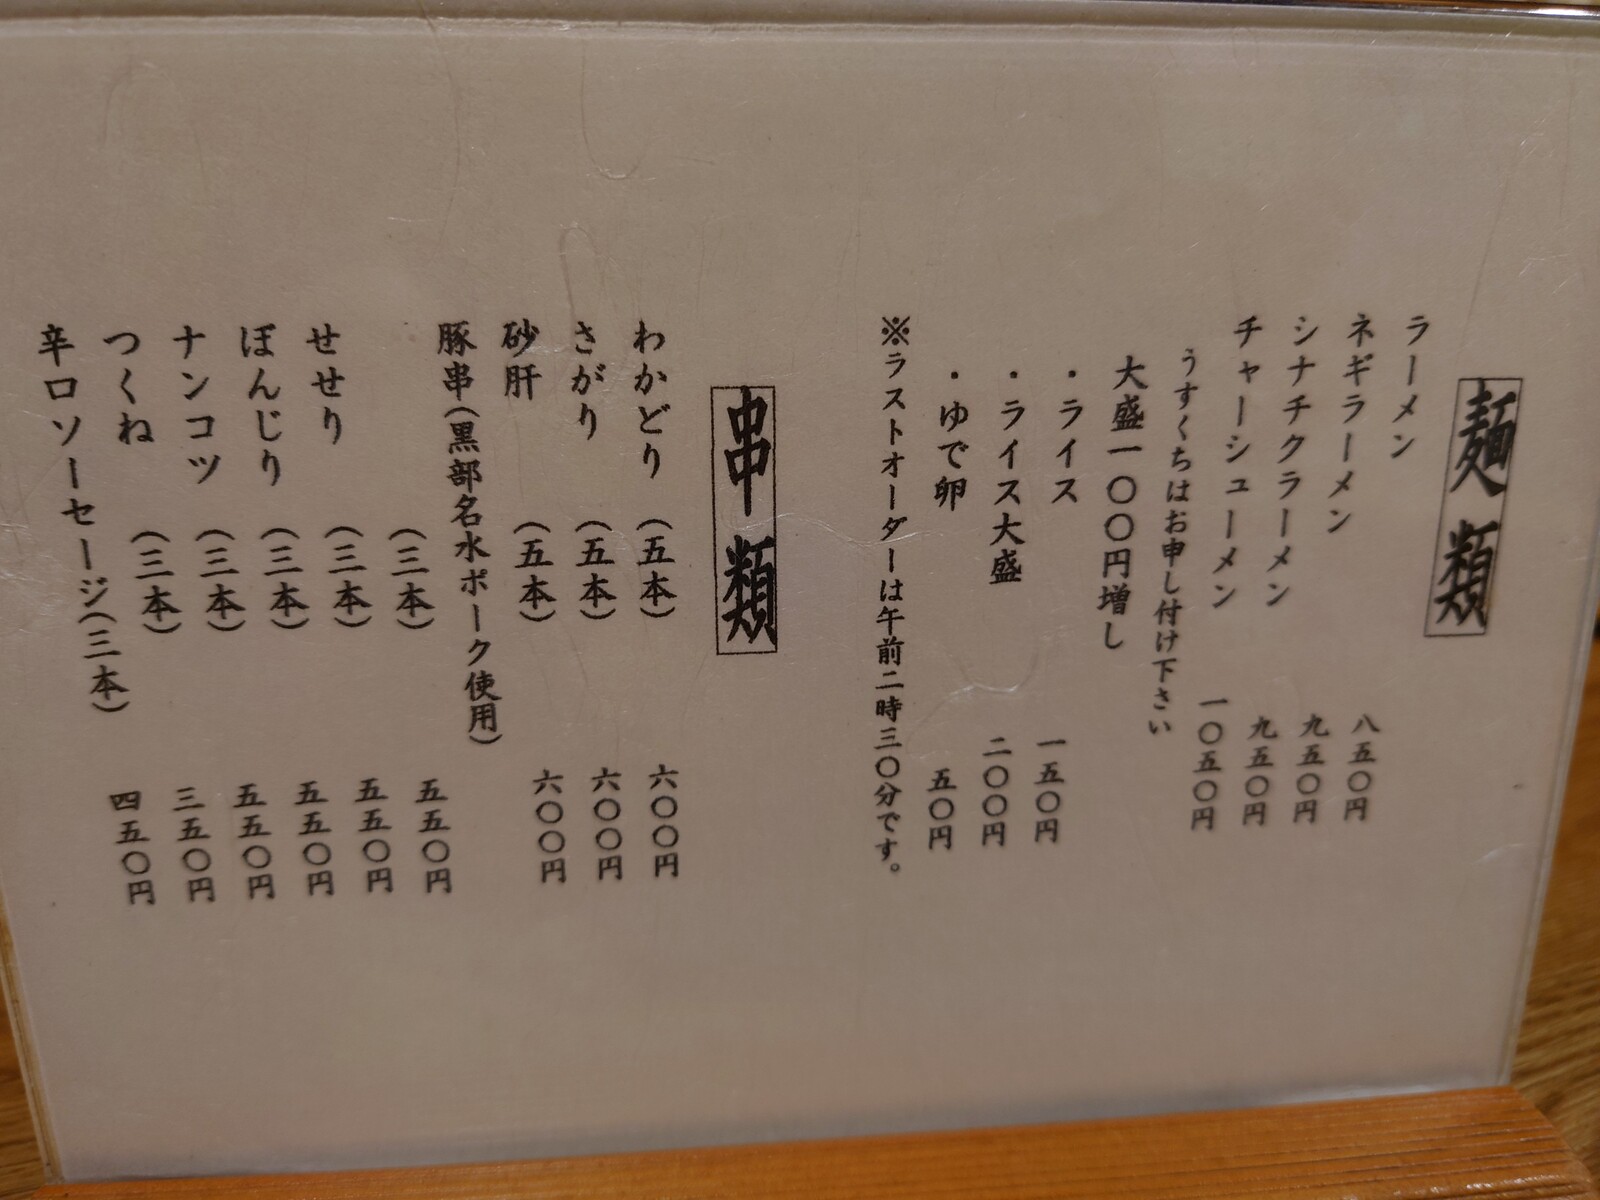 麺類
ラーメン 八五〇円
ネギラーメン 九五〇円
シナチクラーメン 九五〇円
チャーシューメン 一〇五〇円
うすくちはお申し付け下さい
大盛一〇〇円増し
・ライス 一五〇円
・ライス大盛 二〇〇円
・ゆで卵 五〇円
※ラストオーダーは午前二時三〇分です。
串類
わかどり (五本) 六〇〇円
さがり (五本) 六〇〇円
砂肝 (五本) 六〇〇円
豚串(黒部名水ポーク使用)
(三本) 五五〇円
せせり (三本) 五五〇円
ぼんじり (三本) 五五〇円
ナンコツ (三本) 五五〇円
つくね (三本) 三五〇円
辛口ソーセージ(三本) 四五〇円